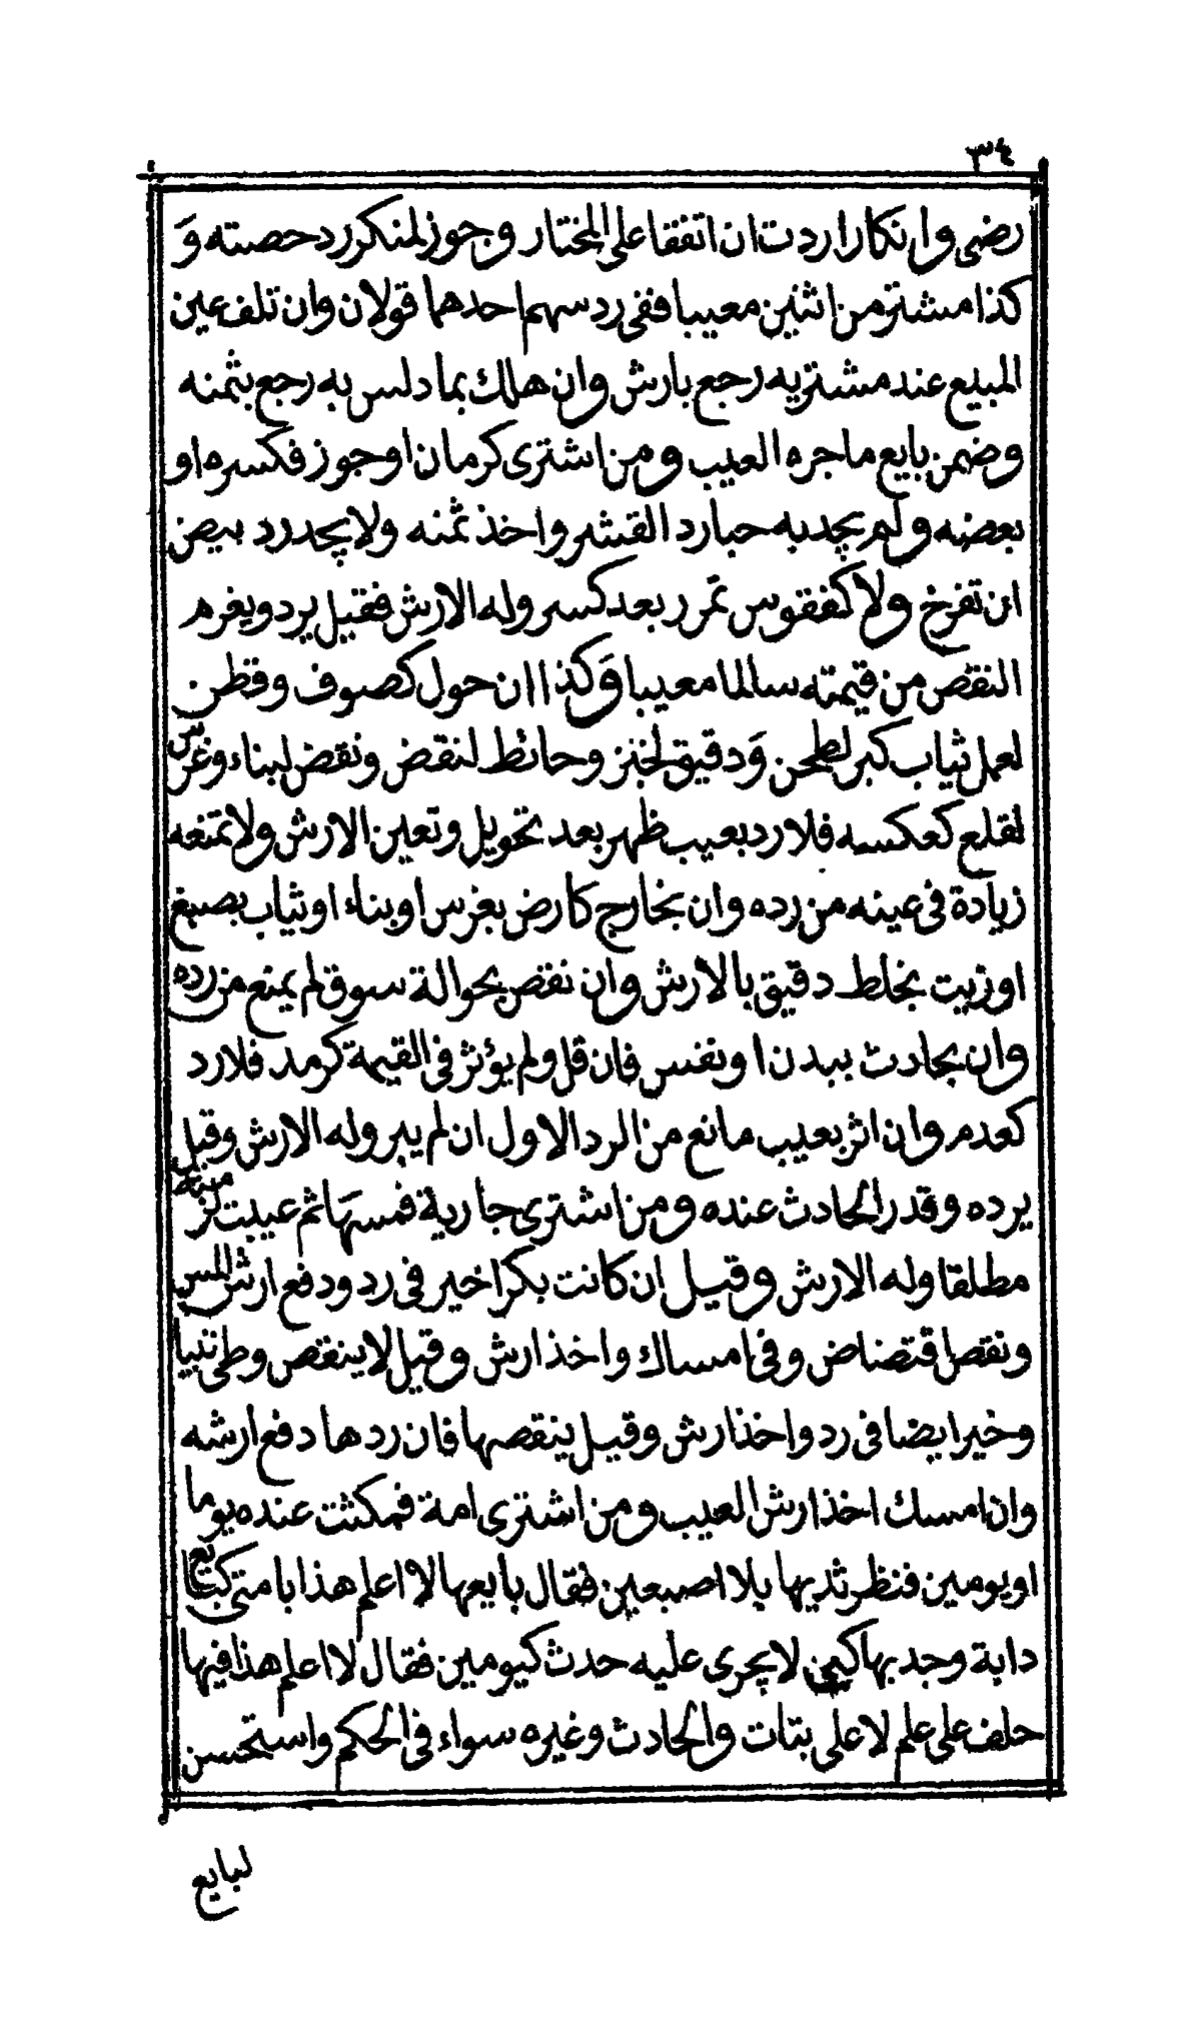 ٣٤
رضى وانكار اردت ان اتفقا على المختار وجوز لمنكر رد حصته وَ
كذا مشتر من اثنين معيبا ففى رد سهم احدهما قولان وان تلف عين
المبيع عند مشتريه رجع بارش وان هلك بما دلس به رجع بثمنه
وضمن بايع ما جره العيب ومن اشترى كرمان اوجوز فكسره او
بعضه ولم يجد به حبا رد القشر واخذ ثمنه ولا يجد رد بيض
ان تفرخ ولا كفقوس تمرر بعد كسر وله الارش فقيل يرد ويغرم
النقص من قيمته سالما معيبا وَكذا ان حول كصوف وقطن
لعمل ثياب كبر لطحن وَدقيق لخبز وحائط لنقض ونقض لبناء وغرس
لقلع كعكسه فلا رد بعيب ظهر بعد تحويل وتعين الارش ولا تمنعه
زيادة فى عينه من رده وان بخارج كارض بغرس او بناء او ثياب بصبغ
او زيت بخلط دقيق بالارش وان نقص بحوالة سوق لم يمنع من رده
وان بحادث ببدن او نفس فان قل ولم يؤثر فى القيمة كرمد فلا رد
كعدم وان اثر بعيب مانع من الرد الاول ان لم يبر وله الارش وقيل
يرده وقدر الحادث عنده ومن اشترى جارية فمسهَا ثم عيبت لزمته
مطلقا وله الارش وقيل ان كانت بكرا خير فى رد ودفع ارش المس
ونقص اقتضاض وفى امساك واخذ ارش وقيل لا ينقص وطى ثيبا
وخير ايضا فى رد واخذ ارش وقيل ينقصها فان ردها دفع ارشه
وان امسك اخذ ارش العيب ومن اشترى امة فمكثت عنده يوما
او يومين فنظر ثديها بلا اصبعين فقال بايعها لا اعلم هذا بامتى كبايع
دابة وجد بها كيمن لا يجرى عليه حدث كيومين فقال لا اعلم هذا فيها
حلف على علم لا على بتات والحادث وغيره سواء فى الحكم واستحسن
لبايع